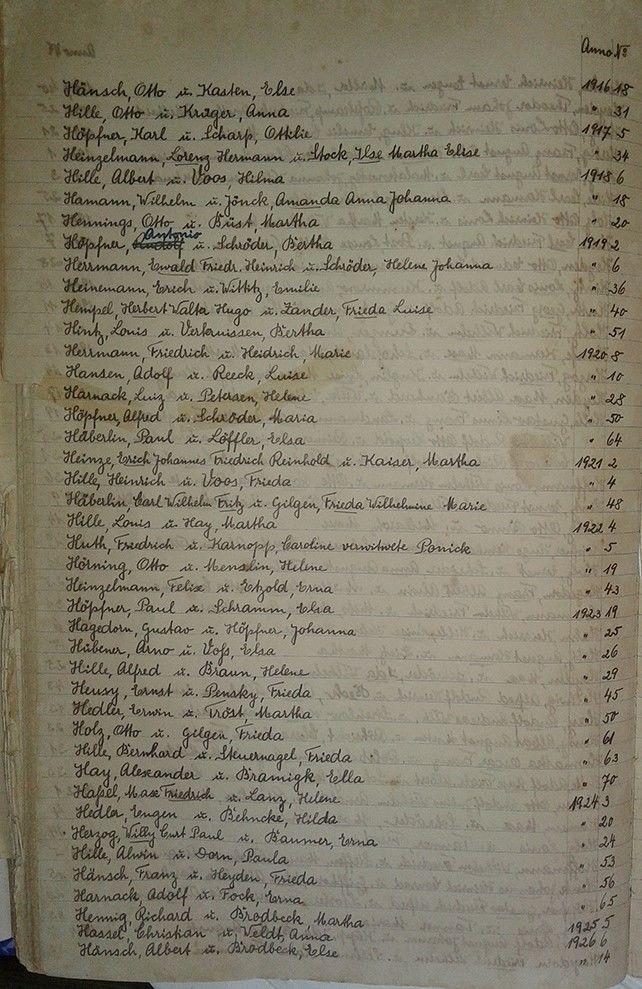 Anno No
Hänsch, Otto u. Kasten, Else 1916 18
Hille, Otto u. Krüger, Anna " 31
Höpfner, Karl u. Scharf, Ottilie 1917 5
Heinzelmann, Lorenz Hermann u. Stock, Ilse Martha Elise " 34
Hille, Albert u. Voos, Hilma 1918 6
Hamann, Wilhelm u. Jönck, Amanda Anna Johanna " 18
Hennings, Otto u. Büst, Martha " 20
Antonio
Höpfner, Rudolf u. Schröder, Bertha 1919 2
Herrmann, Ewald Friedr. Heinrich u. Schröder, Helene Johanna " 6
Heinemann, Erich u. Wittitz, Emilie " 36
Hempel, Herbert Walter Hugo u. Zander, Frieda Luise " 40
Hintz, Louis u. Bertha " 51
Herrmann, Friedrich u. Heidrich, Marie 1920 8
Hansen, Adolf u. Reeck, Luise " 10
Harnack, Luiz u. Petersen, Helene " 28
Höpfner, Alfred u. Schröder, Maria " 50
Häberlin, Paul u. Löffler, Elsa " 64
Heinze, Erich Johannes Friedrich Reinhold u. Kaiser, Martha 1921 2
Hille, Heinrich u. Voos, Frieda " 4
Häberlin, Carl Wilhelm Fritz u. Gilgen, Frieda Wilhelmine Marie " 48
Hille, Louis u. Hay, Martha 1922 4
Huth, Friedrich u. Karnopp, Caroline verwitwete Ponick " 5
Hörning, Otto u. Menslin, Helene " 19
Heinzelmann, Felix u. Etzold, Erna " 43
Höpfner, Paul u. Schramm, Elsa 1923 19
Hagedorn, Gustav u. Höpfner, Johanna " 25
Hübener, Arno u. Voß, Elsa " 26
Hille, Alfred u. Braun, Helene " 29
Heusy, Ernst u. Pensky, Frieda " 45
Hedler, Erwin u. Tröst, Martha " 50
Holz, Otto u. Gilgen, Frieda " 61
Hille, Bernhard u. Steuernagel, Frieda " 63
Hay, Alexander u. Bramigk, Ella " 70
Hapel, Max Friedrich u. Lanz, Helene 1924 3
Hedler, Eugen u. Behncke, Hilda " 20
Herzog, Willy Curt Paul u. Baumer, Erna " 24
Hille, Alwin u. Dorn, Paula " 53
Hänsch, Franz u. Heyden, Frieda " 56
Harnack, Adolf u. Fock, Erna " 65
Hennig, Richard u. Brodbeck, Martha 1925 5
Hassel, Christian u. Veldt, Anna 1926 6
Hänsch, Albert u. Brodbeck, Else " 14